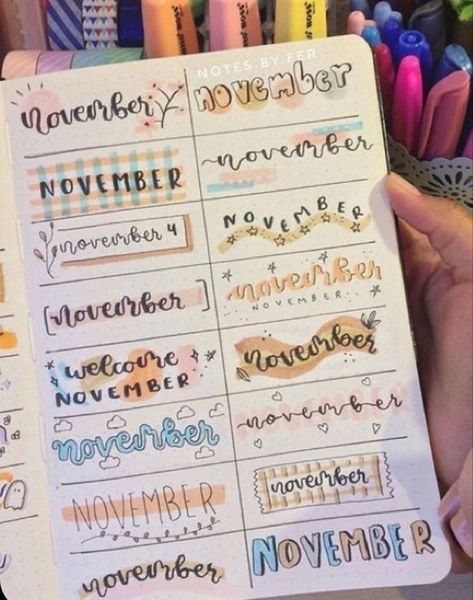 NOTES.BY.FER
november
november
NOVEMBER
~november
november 4
NOVEMBER
[november]
november
NOVEMBER
welcome
NOVEMBER
november
november
november
NOVEMBER
november
november
NOVEMBER